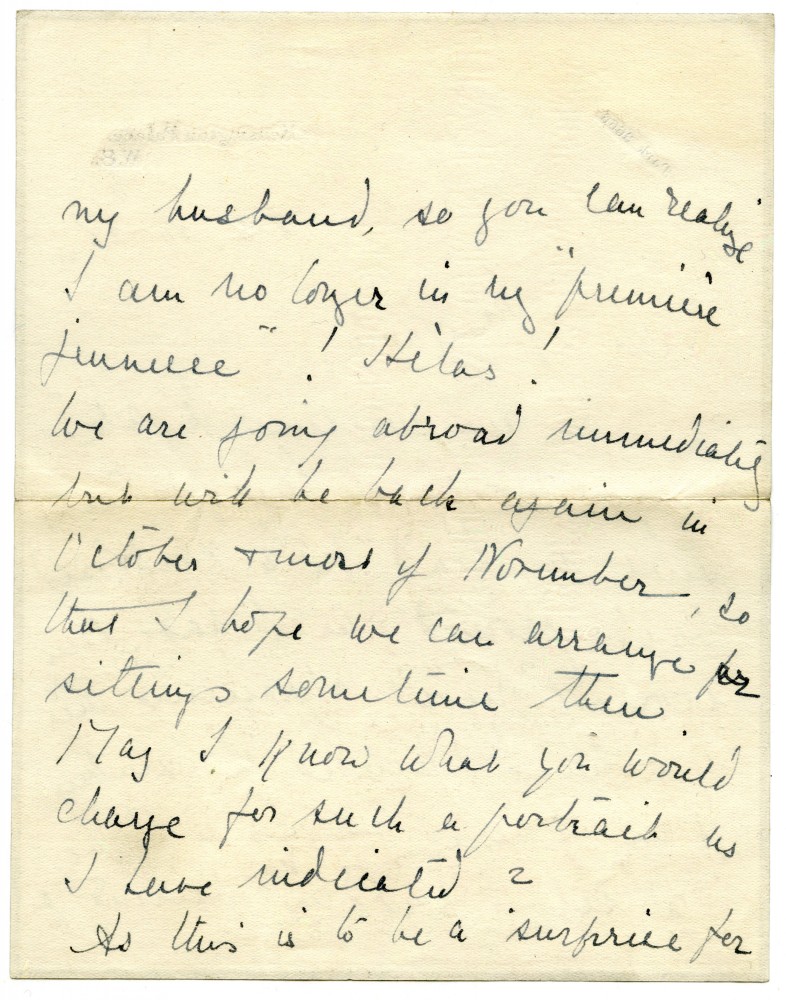 my husband, so you can realize
I am no longer in my "première
jeunesse"! Hélas!
We are going abroad immediately
but will be back again in
October & most of November, so
that I hope we can arrange for
sittings sometime then
May I know what you would
charge for such a portrait as
I have indicated?
As this is to be a surprise for